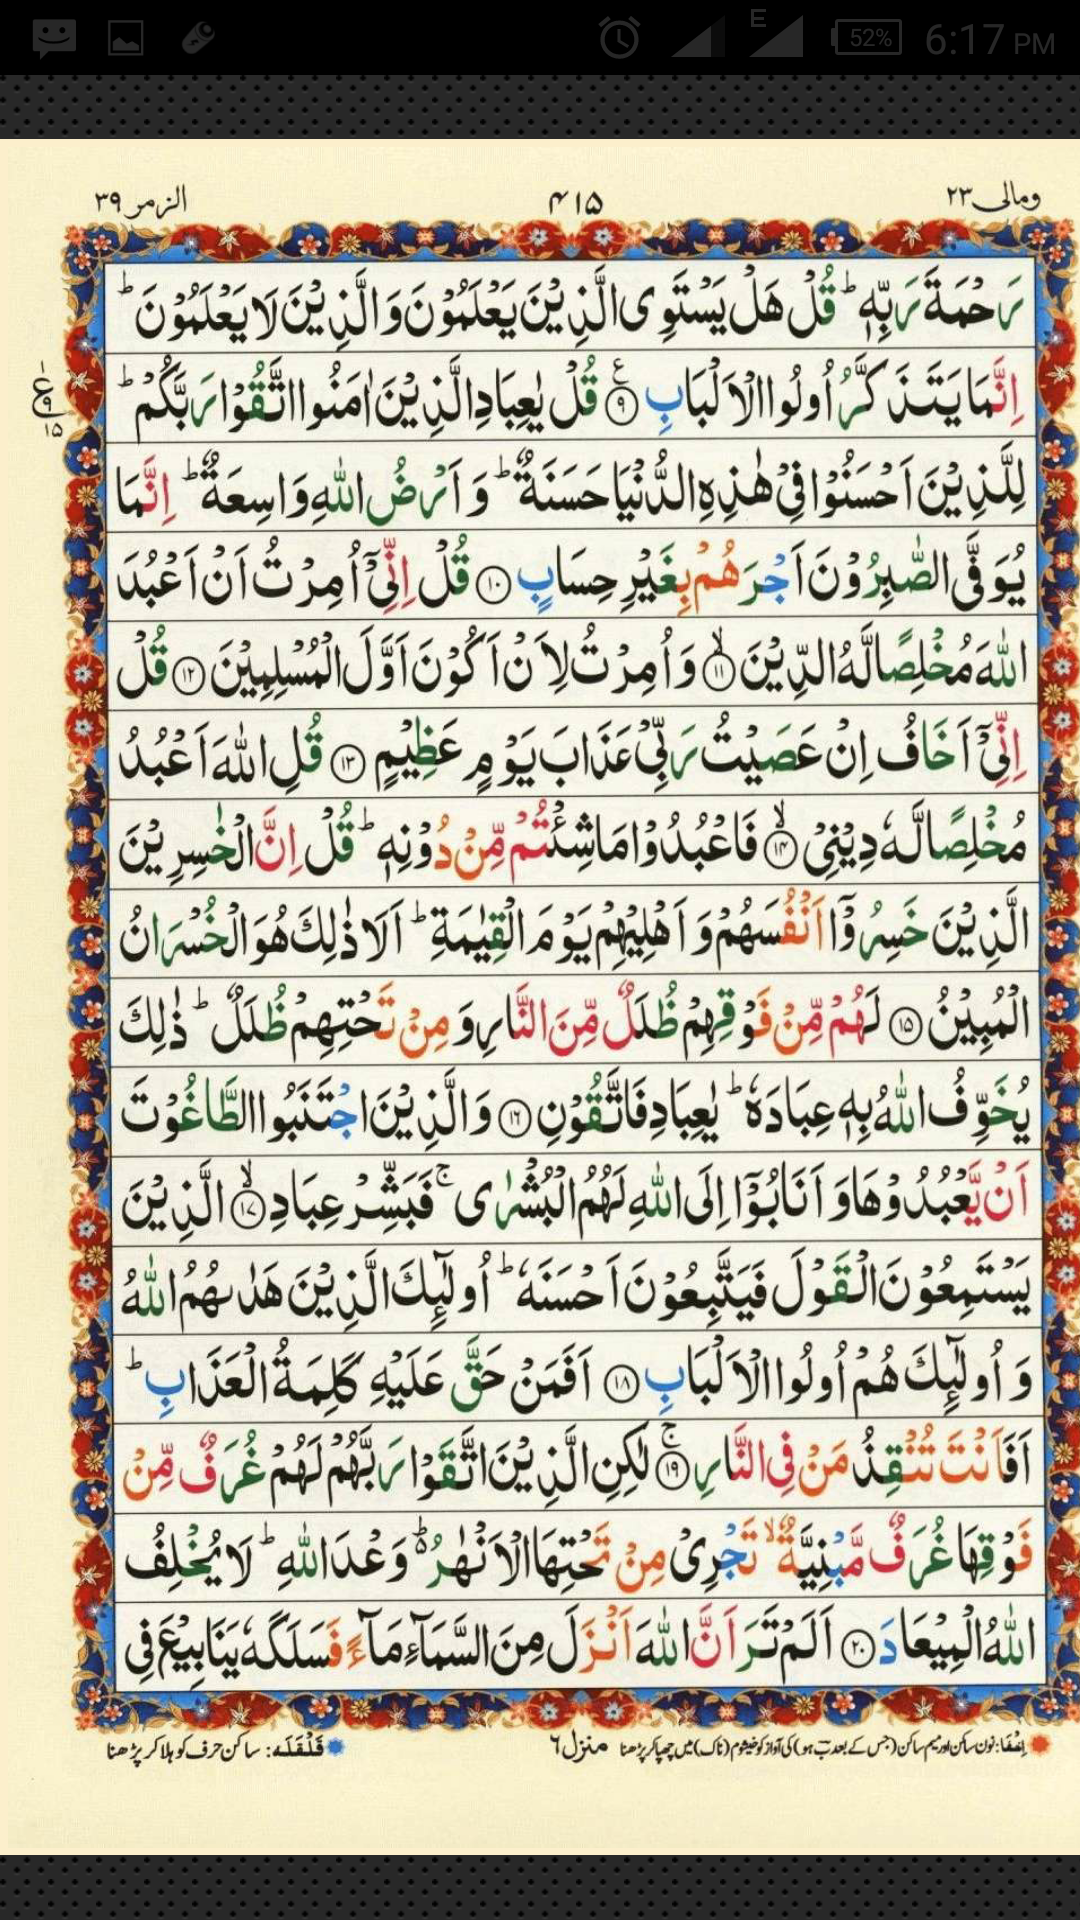 52% 6:17 PM
E
ومالی ۲۳
۴۱۵
الزمر ۳۹
رَحْمَةَ رَبِّهٖ ؕ قُلْ هَلْ يَسْتَوِی الَّذِيْنَ يَعْلَمُوْنَ وَالَّذِيْنَ لَا يَعْلَمُوْنَ ؕ
اِنَّمَا يَتَذَكَّرُ اُولُوا الْاَلْبَابِ ۹ ع قُلْ يٰعِبَادِ الَّذِيْنَ اٰمَنُوا اتَّقُوْا رَبَّكُمْ ؕ
ع ۱ ۹ ۱۵
لِلَّذِيْنَ اَحْسَنُوْا فِیْ هٰذِهِ الدُّنْيَا حَسَنَةٌ ؕ وَاَرْضُ اللّٰهِ وَاسِعَةٌ ؕ اِنَّمَا
يُوَفَّی الصّٰبِرُوْنَ اَجْرَهُمْ بِغَيْرِ حِسَابٍ ۱۰ قُلْ اِنِّیْۤ اُمِرْتُ اَنْ اَعْبُدَ
اللّٰهَ مُخْلِصًا لَّهُ الدِّيْنَ ۙ۱۱ وَاُمِرْتُ لِاَنْ اَكُوْنَ اَوَّلَ الْمُسْلِمِيْنَ ۱۲ قُلْ
اِنِّیْۤ اَخَافُ اِنْ عَصَيْتُ رَبِّیْ عَذَابَ يَوْمٍ عَظِيْمٍ ۱۳ قُلِ اللّٰهَ اَعْبُدُ
مُخْلِصًا لَّهٗ دِيْنِیْ ۙ۱۴ فَاعْبُدُوْا مَا شِئْتُمْ مِّنْ دُوْنِهٖ ؕ قُلْ اِنَّ الْخٰسِرِيْنَ
الَّذِيْنَ خَسِرُوْۤا اَنْفُسَهُمْ وَاَهْلِيْهِمْ يَوْمَ الْقِيٰمَةِ ؕ اَلَا ذٰلِكَ هُوَ الْخُسْرَانُ
الْمُبِيْنُ ۱۵ لَهُمْ مِّنْ فَوْقِهِمْ ظُلَلٌ مِّنَ النَّارِ وَمِنْ تَحْتِهِمْ ظُلَلٌ ؕ ذٰلِكَ
يُخَوِّفُ اللّٰهُ بِهٖ عِبَادَهٗ ؕ يٰعِبَادِ فَاتَّقُوْنِ ۱۶ وَالَّذِيْنَ اجْتَنَبُوا الطَّاغُوْتَ
اَنْ يَّعْبُدُوْهَا وَاَنَابُوْۤا اِلَی اللّٰهِ لَهُمُ الْبُشْرٰی ۚ فَبَشِّرْ عِبَادِ ۙ۱۷ الَّذِيْنَ
يَسْتَمِعُوْنَ الْقَوْلَ فَيَتَّبِعُوْنَ اَحْسَنَهٗ ؕ اُولٰٓئِكَ الَّذِيْنَ هَدٰىهُمُ اللّٰهُ
وَاُولٰٓئِكَ هُمْ اُولُوا الْاَلْبَابِ ۱۸ اَفَمَنْ حَقَّ عَلَيْهِ كَلِمَةُ الْعَذَابِ ؕ
اَفَاَنْتَ تُنْقِذُ مَنْ فِی النَّارِ ۚ۱۹ لٰكِنِ الَّذِيْنَ اتَّقَوْا رَبَّهُمْ لَهُمْ غُرَفٌ مِّنْ
فَوْقِهَا غُرَفٌ مَّبْنِيَّةٌ ۙ تَجْرِیْ مِنْ تَحْتِهَا الْاَنْهٰرُ ؕ۬ وَعْدَ اللّٰهِ ؕ لَا يُخْلِفُ
اللّٰهُ الْمِيْعَادَ ۲۰ اَلَمْ تَرَ اَنَّ اللّٰهَ اَنْزَلَ مِنَ السَّمَآءِ مَآءً فَسَلَكَهٗ يَنَابِيْعَ فِی
اِخْفَا: نون ساکن اور میم ساکن (جس کے بعد ب ہو) کی آواز کو خیشوم (ناک) میں چھپا کر پڑھنا
منزل ۶
قَلْقَلَه: ساکن حرف کو ہلا کر پڑھنا